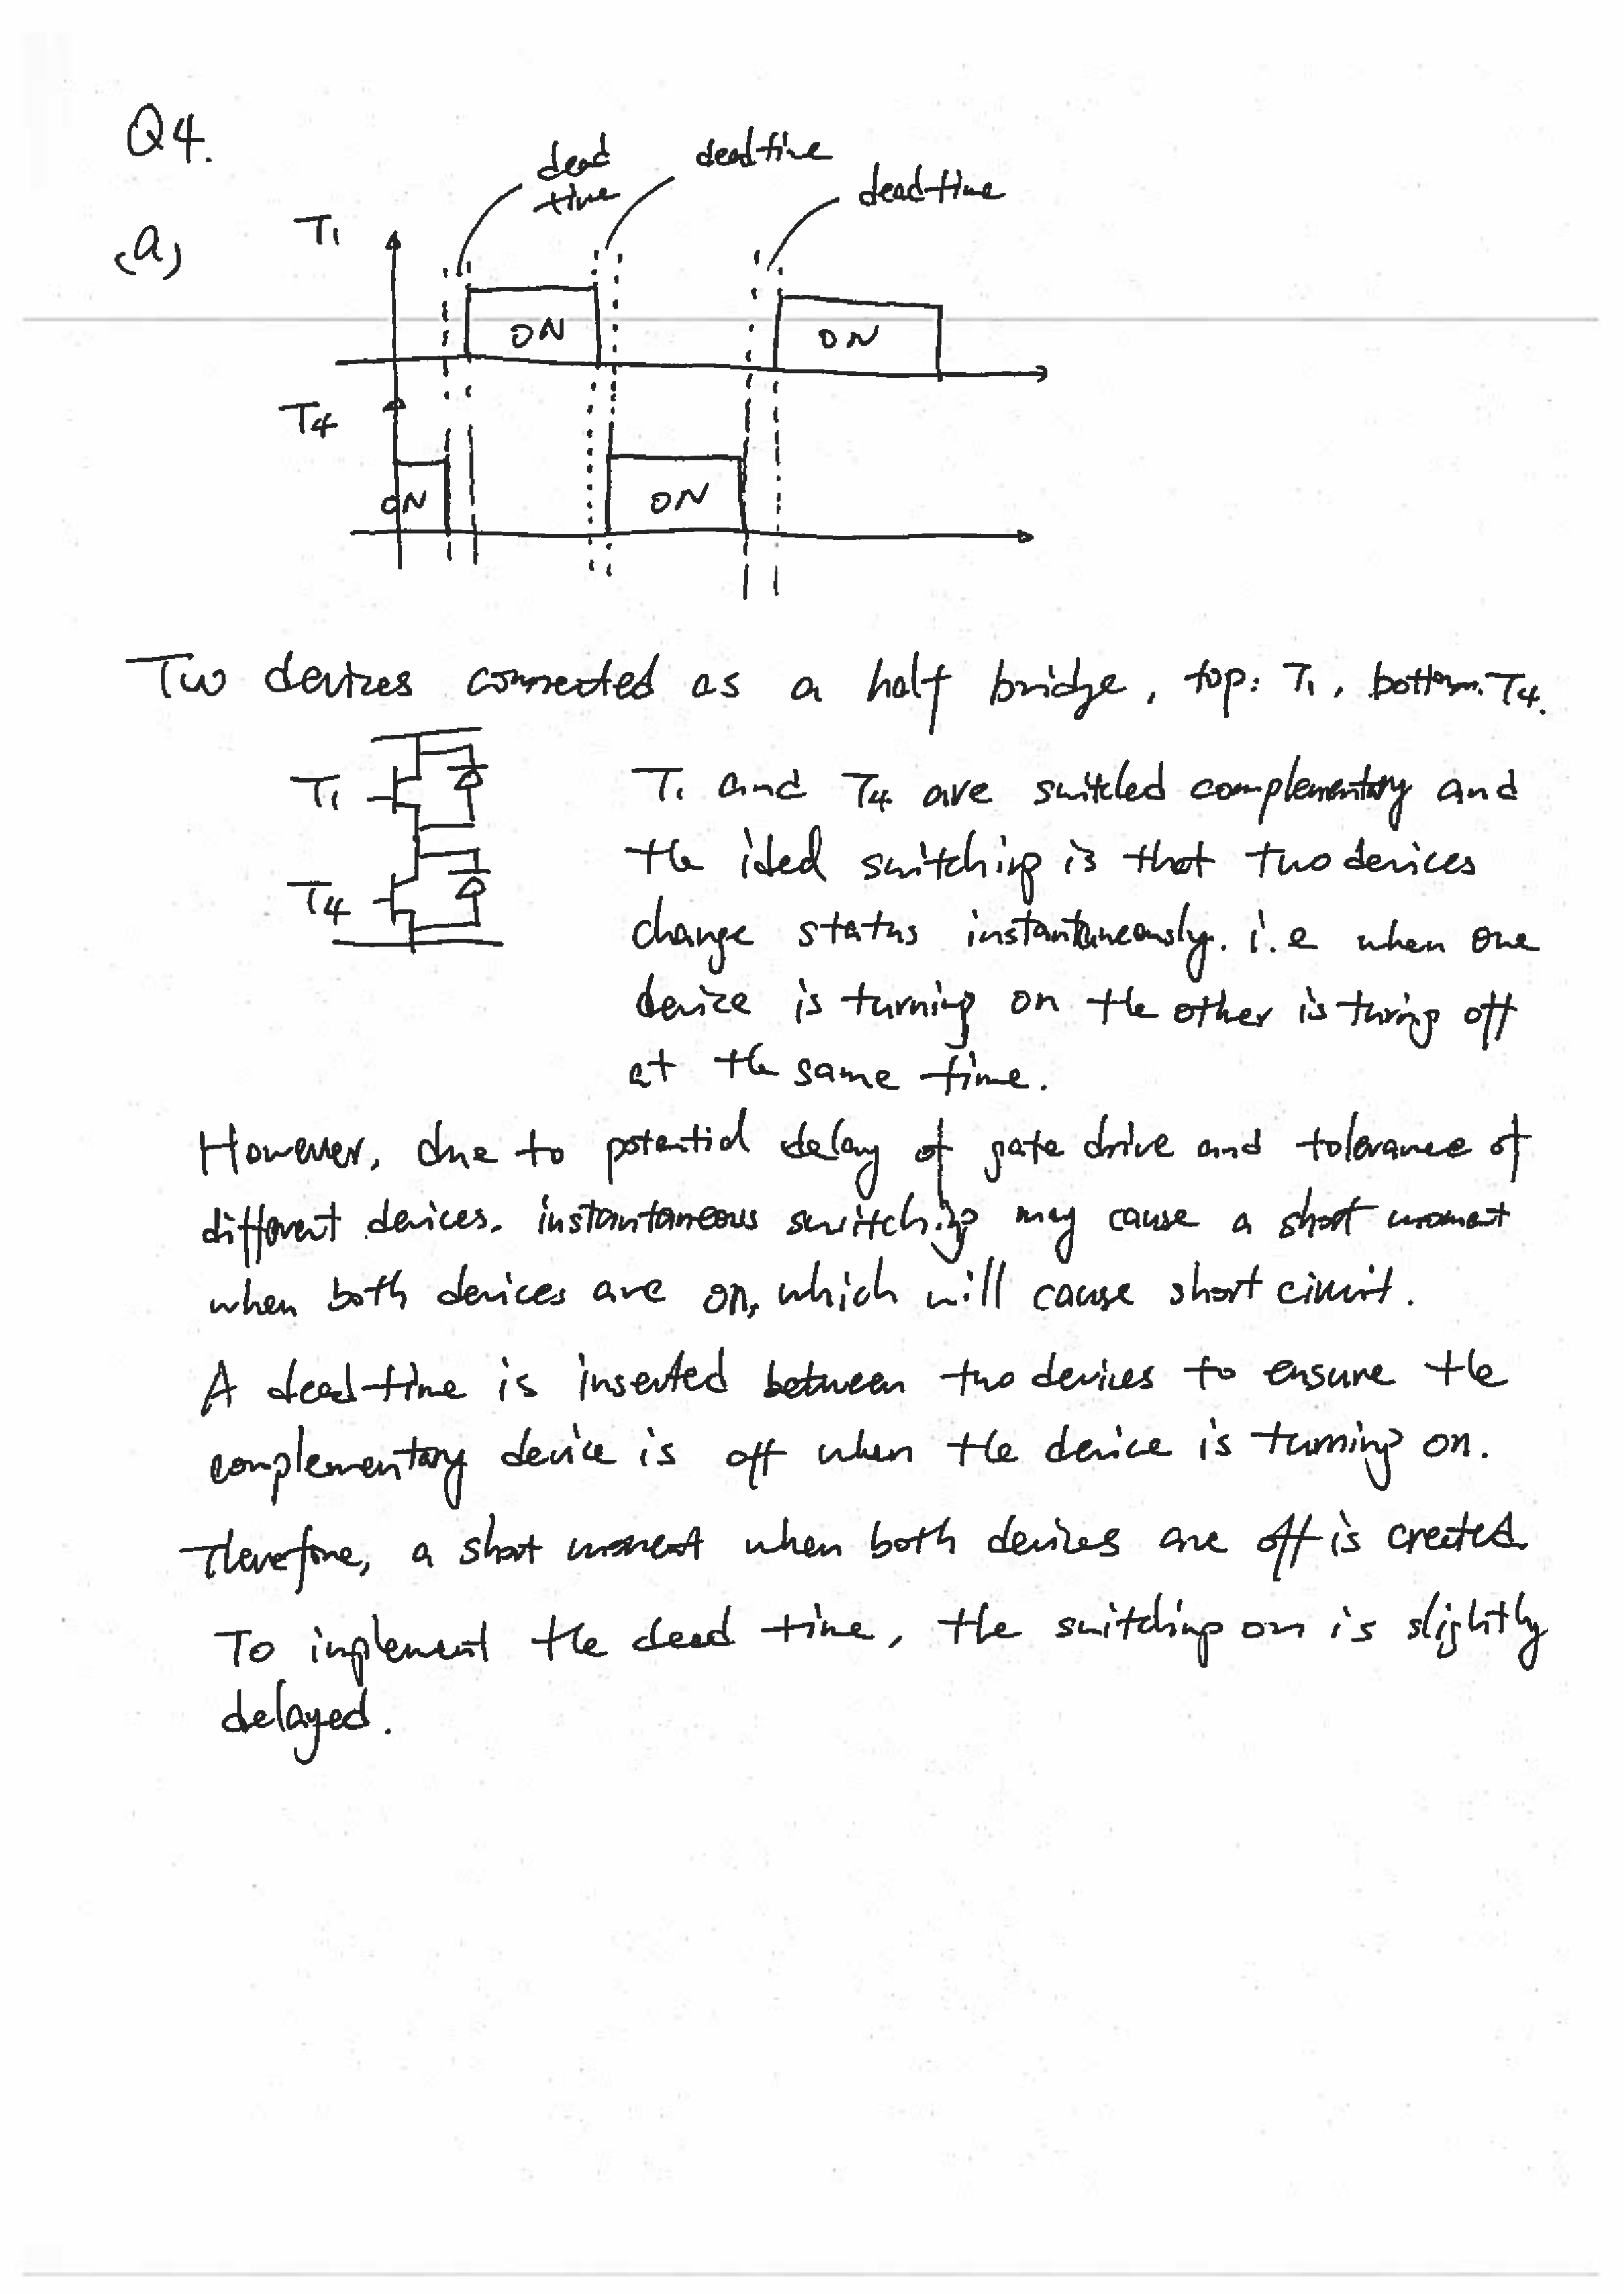 Q4.
(a)
dead
time
deadtime
deadtime
T1
ON
ON
T4
ON
ON
Two devices connected as a half bridge, top: T1, bottom: T4.
T1
T4
T1 and T4 are switched complementary and
the ideal switching is that two devices
change status instantaneously. i.e when one
device is turning on the other is turing off
at the same time.
However, due to potential delay of gate drive and tolerance of
different devices. instantaneous switching may cause a short moment
when both devices are on, which will cause short circuit.
A deadtime is inserted between two devices to ensure the
complementary device is off when the device is turning on.
Therefore, a short moment when both devices are off is created.
To implement the dead time, the switching on is slightly
delayed.